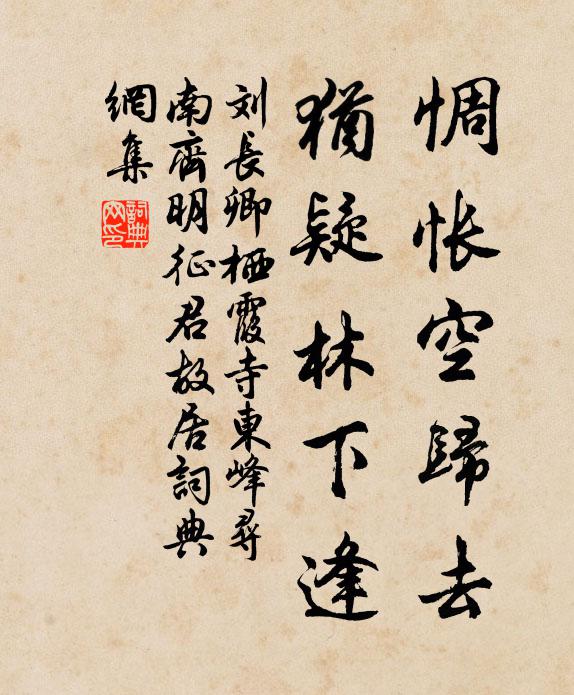 惆怅空歸去
猶疑林下逢
刘長卿栖霞寺東峰尋
南齊明征君故居詞典
網集
詞典
网印